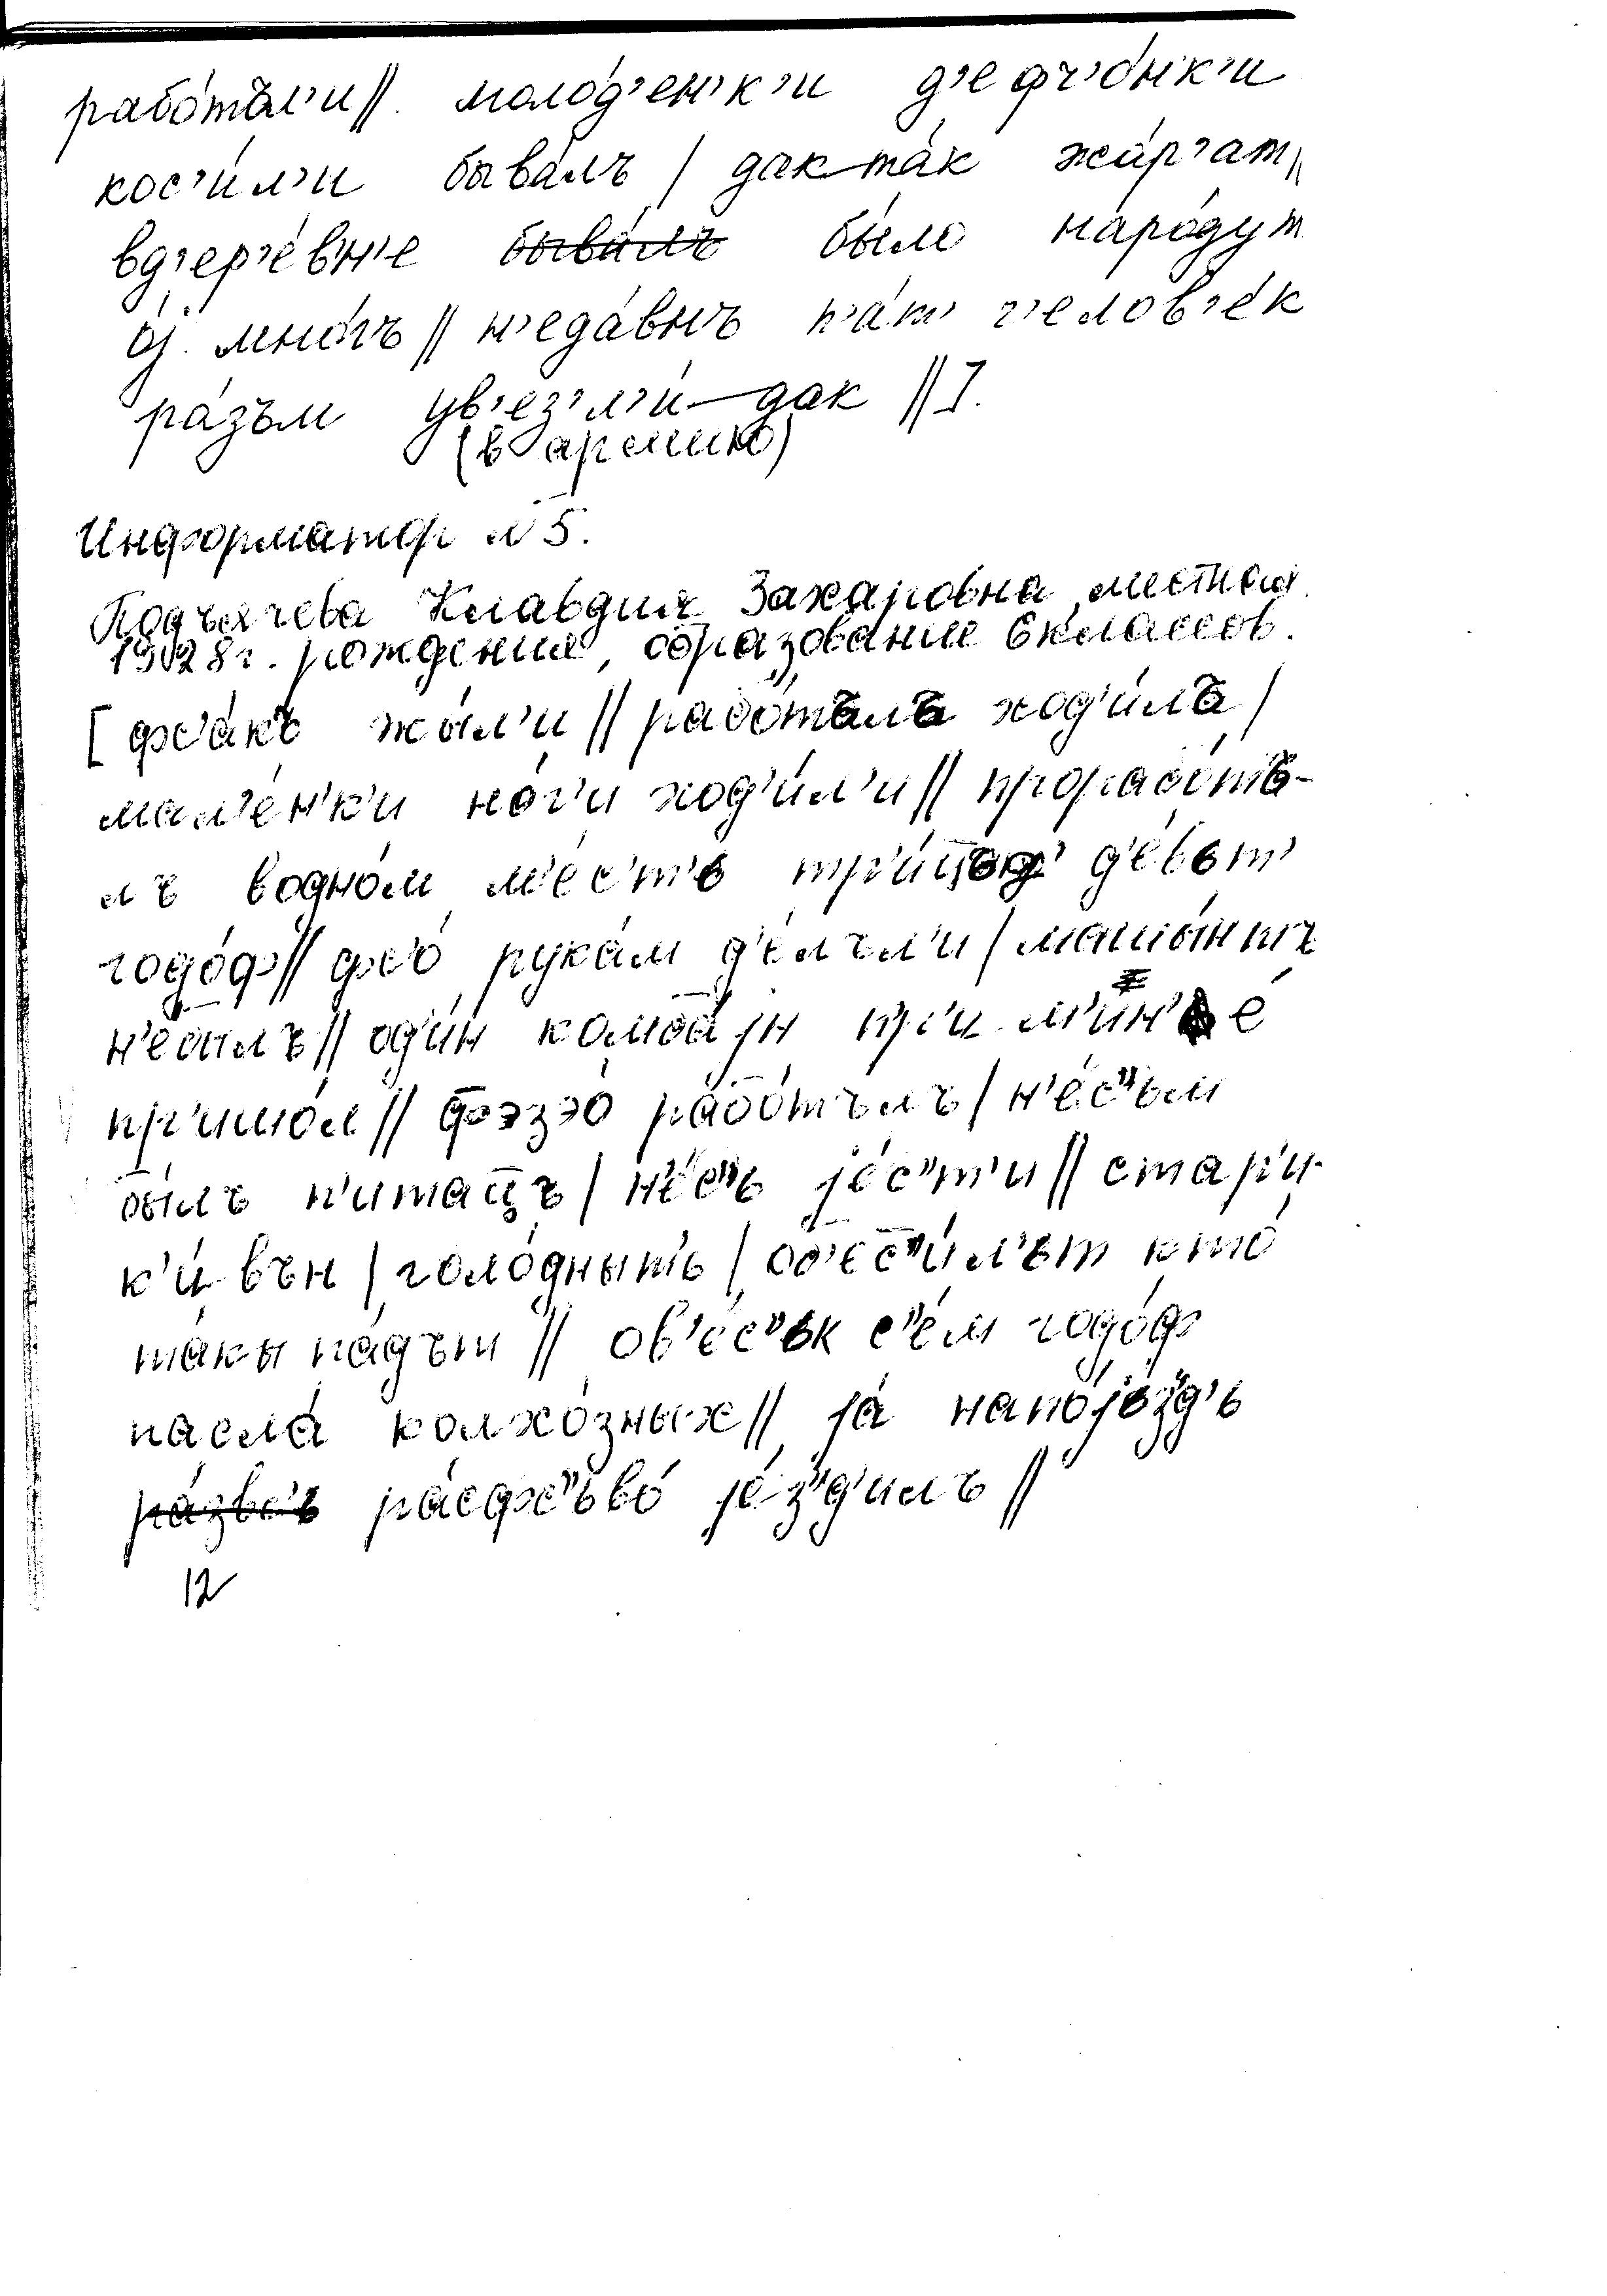 рабо́тъл'и//. моло́д'ен'к'и д'е фч'о́нк'и
кос'и́л'и быва́лъ / дак та́к жа́рг'ат//
вд'ер'е́вн'е ~~быва́лъ~~ бы́ло наро́дут
о́j. мно́гъ // н'еда́внъ п'а́т' ч'елов'е́к
ра́зъм ув'ез'л'и́ дак //].
(в армию)
Информатор №5.
Подъячева Клавдия Захаровна, местная.
1928 г. рождения, образование 6 классов.
[ фс'а́къ жы́л'и // рабо́тълъ ход'и́лъ /
мал'е́н'к'и но́г'и ход'и́л'и // прорабо́тъ-
лъ водно́м м'е́с'т'ь д'е́вьт'
годо́ф // фс'о́ рука́м д'е́лъл'и / машы́нтъ
н'ебылъ // од'и́н комба́jн пр'и м'ин'е́
пр'ишо́л // фэзэо́ рабо́тълъ / н'е́с"ьм
бы́лъ п'ита́ццъ / н'е́с"ь jе́с"т'и // стар'и-
к'и́ вън / голо́дныть / об'ес"и́л'ьт кто́
та́кы па́дът // ов'е́с"ьк с'е́м годо́ф
пасла́ колхо́зных // jа́ напо́jьзд'ь
ра́сфс"ьво́ jе́з"д'илъ //
12